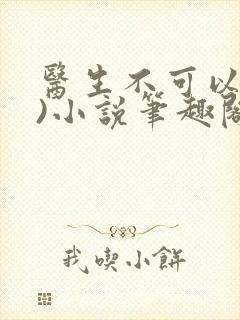 醫生不可以
)小說筆趣閣
我喫小餅